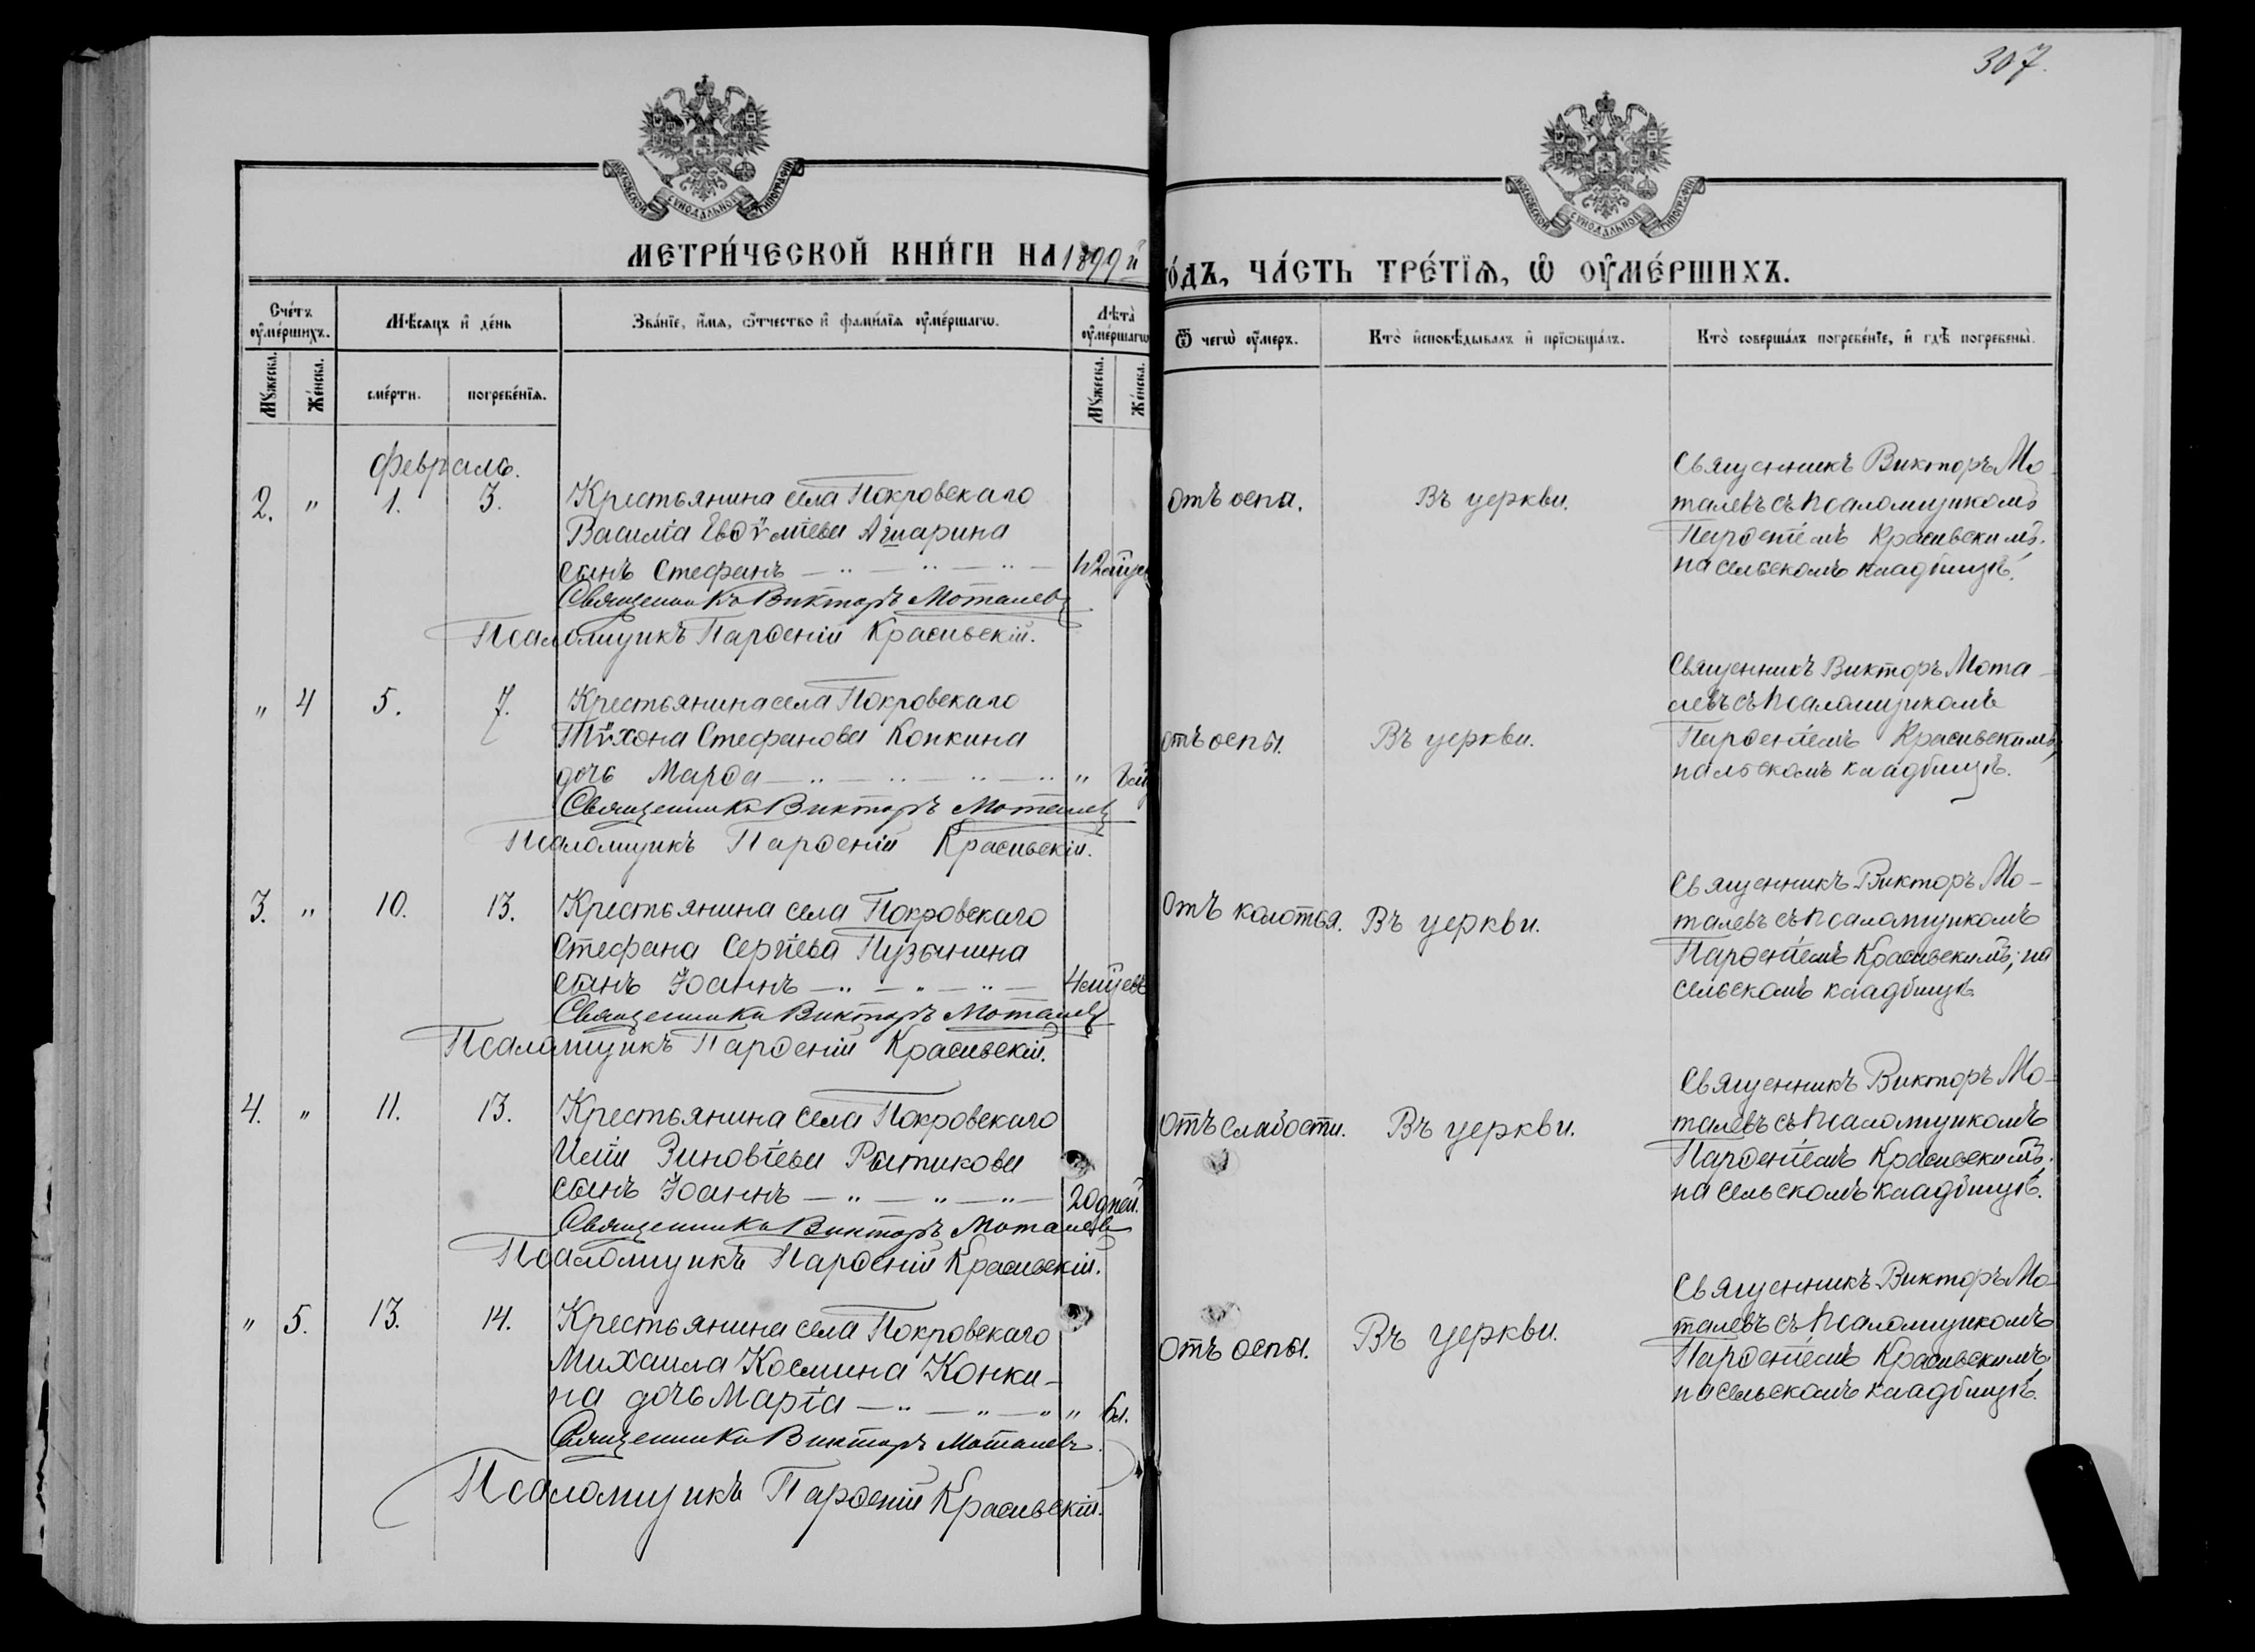 307.
МОСКОВСКОЙ СѴНОДАЛЬНОЙ ТИПОГРАФІИ
МОСКОВСКОЙ СѴНОДАЛЬНОЙ ТИПОГРАФІИ
МЕТРИ́ЧЕСКОЙ КНИ́ГИ НА 1899й
ГО́ДЪ, ЧА́СТЬ ТРЕ́ТІѦ, Ѡ ОУ҆МЕ́РШИХЪ.
Сче́тъ оу҆ме́ршихъ.
Мѣсяцъ и҆ де́нь
Зва́нїе, и҆́мя, ѻ҆́тчество и҆ фами́лїя оу҆ме́ршагѡ.
Лѣта̀ оу҆ме́ршагѡ
Ѿ чегѡ̀ оу҆́меръ.
Кто̀ и҆сповѣ́дывалъ и҆ прїѡбща́лъ.
Кто̀ соверша́лъ погребе́нїе, и҆ гдѣ̀ погребены̀.
Мꙋ́жеска.
Же́нска.
сме́рти.
погребе́нїя.
Мꙋ́жеска.
Же́нска.
Февраль.
2. " 1. 3.
Крестьянина села Покровскаго
Василія Евѳѵміева
сынъ Стефанъ
Священникъ Викторъ Моталевъ
Псаломщикъ Парѳеній Красивскій.
отъ оспа.
Въ церкви.
Священникъ Викторъ Мо
талевъ съ псаломщикомъ
Парѳеніемъ Красивскимъ.
на сельскомъ кладбищѣ.
" 4 5. 7.
Крестьянина села Покровскаго
Тѵхона Стефанова Конкина
дочь Марѳа "
Священникъ Викторъ Моталевъ
Псаломщикъ Парѳеній Красивскій.
отъ оспы.
Въ церкви.
Священникъ Викторъ Мота
левъ съ псаломщикомъ
Парѳеніемъ Красивскимъ,
кладбищѣ.
3. " 10. 13.
Крестьянина села Покровскаго
Стефана Сергіева Пузынина
сынъ Іоаннъ 4 мѣцевъ
Священникъ Викторъ Моталевъ
Псаломщикъ Парѳеній Красивскій.
Отъ колотья.
Въ церкви.
Священникъ Викторъ Мо-
талевъ съ псаломщикомъ
Парѳеніемъ Красивскимъ; на
сельскомъ кладбищѣ.
4. " 11. 13.
Крестьянина села Покровскаго
Иліи Зиновіева
сынъ Іоаннъ 20 дней.
Священникъ Викторъ Моталевъ
Псаломщикъ Парѳеній Красивскій.
Отъ слабости.
Въ церкви.
Священникъ Викторъ Мо-
талевъ съ псаломщикомъ
Парѳеніемъ Красивскимъ.
на сельскомъ кладбищѣ.
" 5. 13. 14.
Крестьянина села Покровскаго
Михаила Космина Конки-
на дочь Марія " 6 л.
Священникъ Викторъ Моталевъ
Псаломщикъ Парѳеній Красивскій.
Отъ оспы.
Въ церкви.
Священникъ Викторъ Мо-
талевъ съ псаломщикомъ
Парѳеніемъ Красивскимъ
на сельскомъ кладбищѣ.